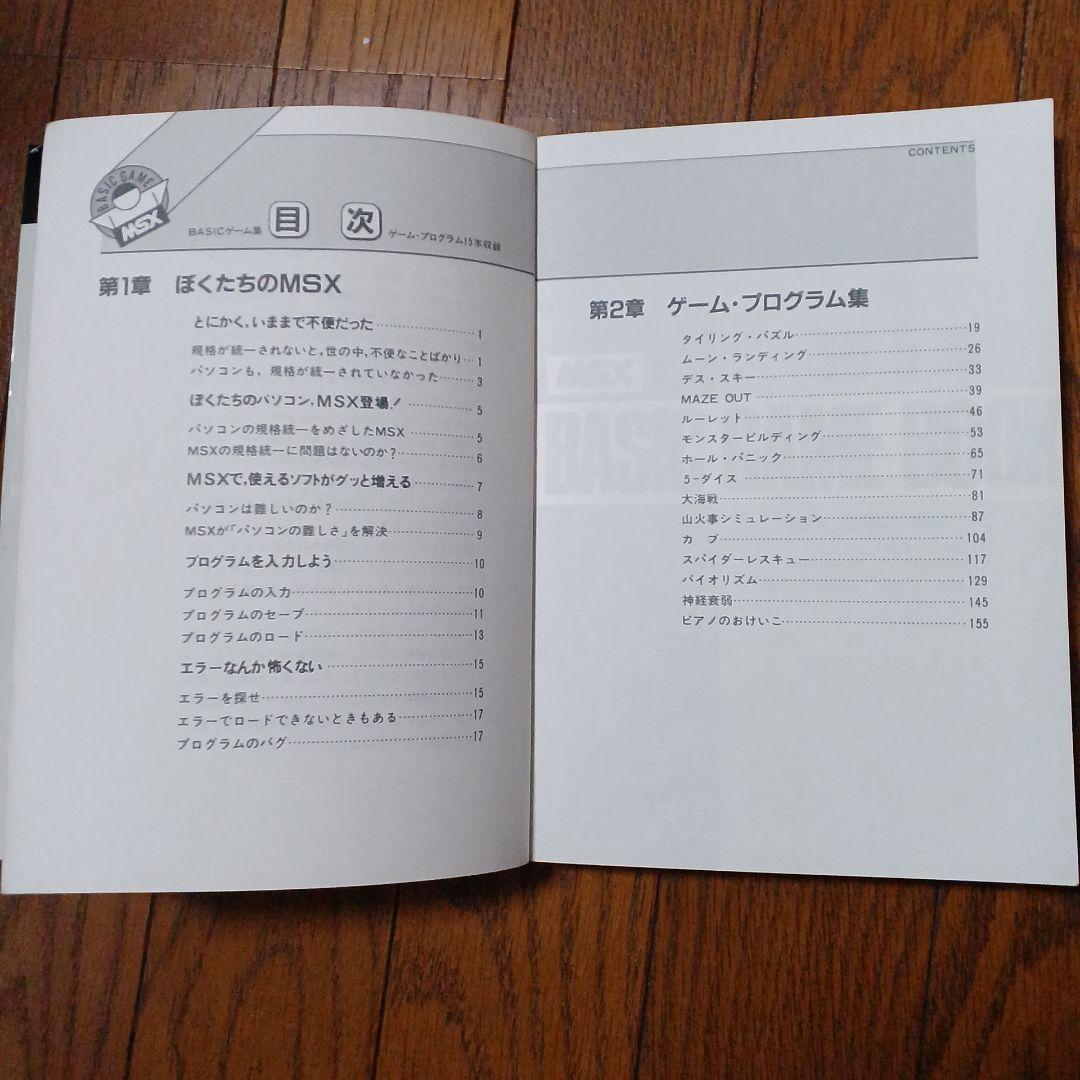 BASIC GAME
MSX
BASICゲーム集 目次 ゲーム・プログラム15本収録
第1章 ぼくたちのMSX
とにかく,いままで不便だった…………1
規格が統一されないと,世の中,不便なことばかり…1
パソコンも,規格が統一されていなかった……3
ぼくたちのパソコン,MSX登場!…………5
パソコンの規格統一をめざしたMSX…………5
MSXの規格統一に問題はないのか?…………6
MSXで,使えるソフトがグッと増える…………7
パソコンは難しいのか?…………8
MSXが「パソコンの難しさ」を解決…………9
プログラムを入力しよう…………10
プログラムの入力…………10
プログラムのセーブ…………11
プログラムのロード…………13
エラーなんか怖くない…………15
エラーを探せ…………15
エラーでロードできないときもある…………17
プログラムのバグ…………17
CONTENTS
第2章 ゲーム・プログラム集
タイリング・パズル…………19
ムーン・ランディング…………26
デス・スキー…………33
MAZE OUT…………39
ルーレット…………46
モンスタービルディング…………53
ホール・パニック…………65
5-ダイス…………71
大海戦…………81
山火事シミュレーション…………87
カブ…………104
スパイダーレスキュー…………117
バイオリズム…………129
神経衰弱…………145
ピアノのおけいこ…………155